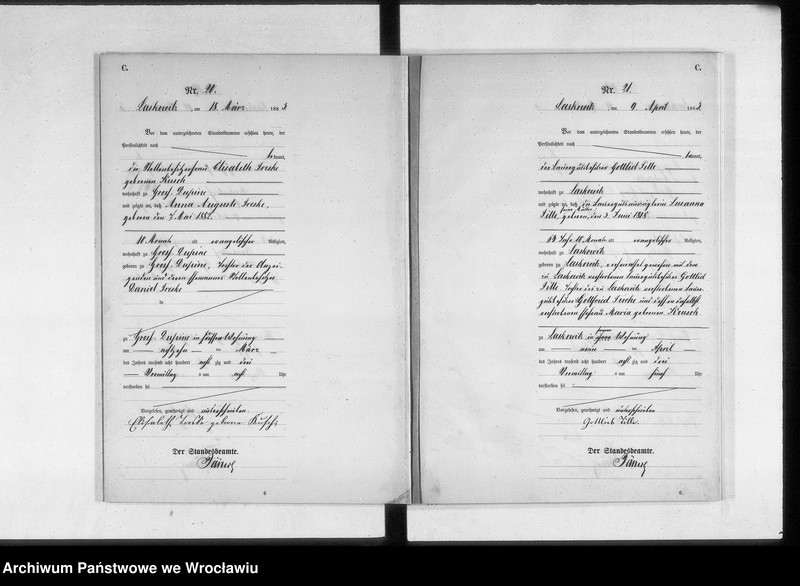 C.
Nr. 20.
Laskowitz, am 18. März 1883
Vor dem unterzeichneten Standesbeamten erschien heute, der
Persönlichkeit nach
bekannt,
die Stellenbesitzersfrau Elisabeth
geborene
wohnhaft zu Gross Dupine
und zeigte an, daß Anna Auguste
geboren den 7. Mai 1882.
10 Monate alt evangelischer Religion,
wohnhaft zu Gross Dupine
geboren zu Gross Dupine, Tochter der Anzei-
genden und deren Ehemannes Stellenbesitzer
Daniel
de
zu Gross Dupine in Wohnung
am achtzehn ten März
des Jahres tausend acht hundert acht zig und drei
Vormittag s um acht Uhr
verstorben sei
Vorgelesen, genehmigt und unterschrieben
Elisabeth geborne
Der Standesbeamte.
6
C.
Nr. 21.
Laskowitz, am 9. April 1883
Vor dem unterzeichneten Standesbeamten erschien heute, der
Persönlichkeit nach
bekannt,
der Bauergutsbesitzer Gottlieb Tille
wohnhaft zu Laskowitz
und zeigte an, daß die Susanna
Tille, geboren den 3. Juni 1818
64 Jahr 10 Monate alt evangelischer Religion,
wohnhaft zu Laskowitz
geboren zu Laskowitz, verheirathet gewesen mit dem
zu Laskowitz verstorbenen Bauergutsbesitzer Gottlieb
Tille. Tochter des zu Laskowitz verstorbenen Bauer-
gutsbesitzer Gottfried und dessen daselbst
verstorbenen Ehefrau Maria geborenen
zu Laskowitz in Wohnung
am neun ten April
des Jahres tausend acht hundert acht zig und drei
Vormittag s um fünf Uhr
verstorben sei
Vorgelesen, genehmigt und unterschrieben
Gottlieb Tille.
Der Standesbeamte.
6.
Archiwum Państwowe we Wrocławiu